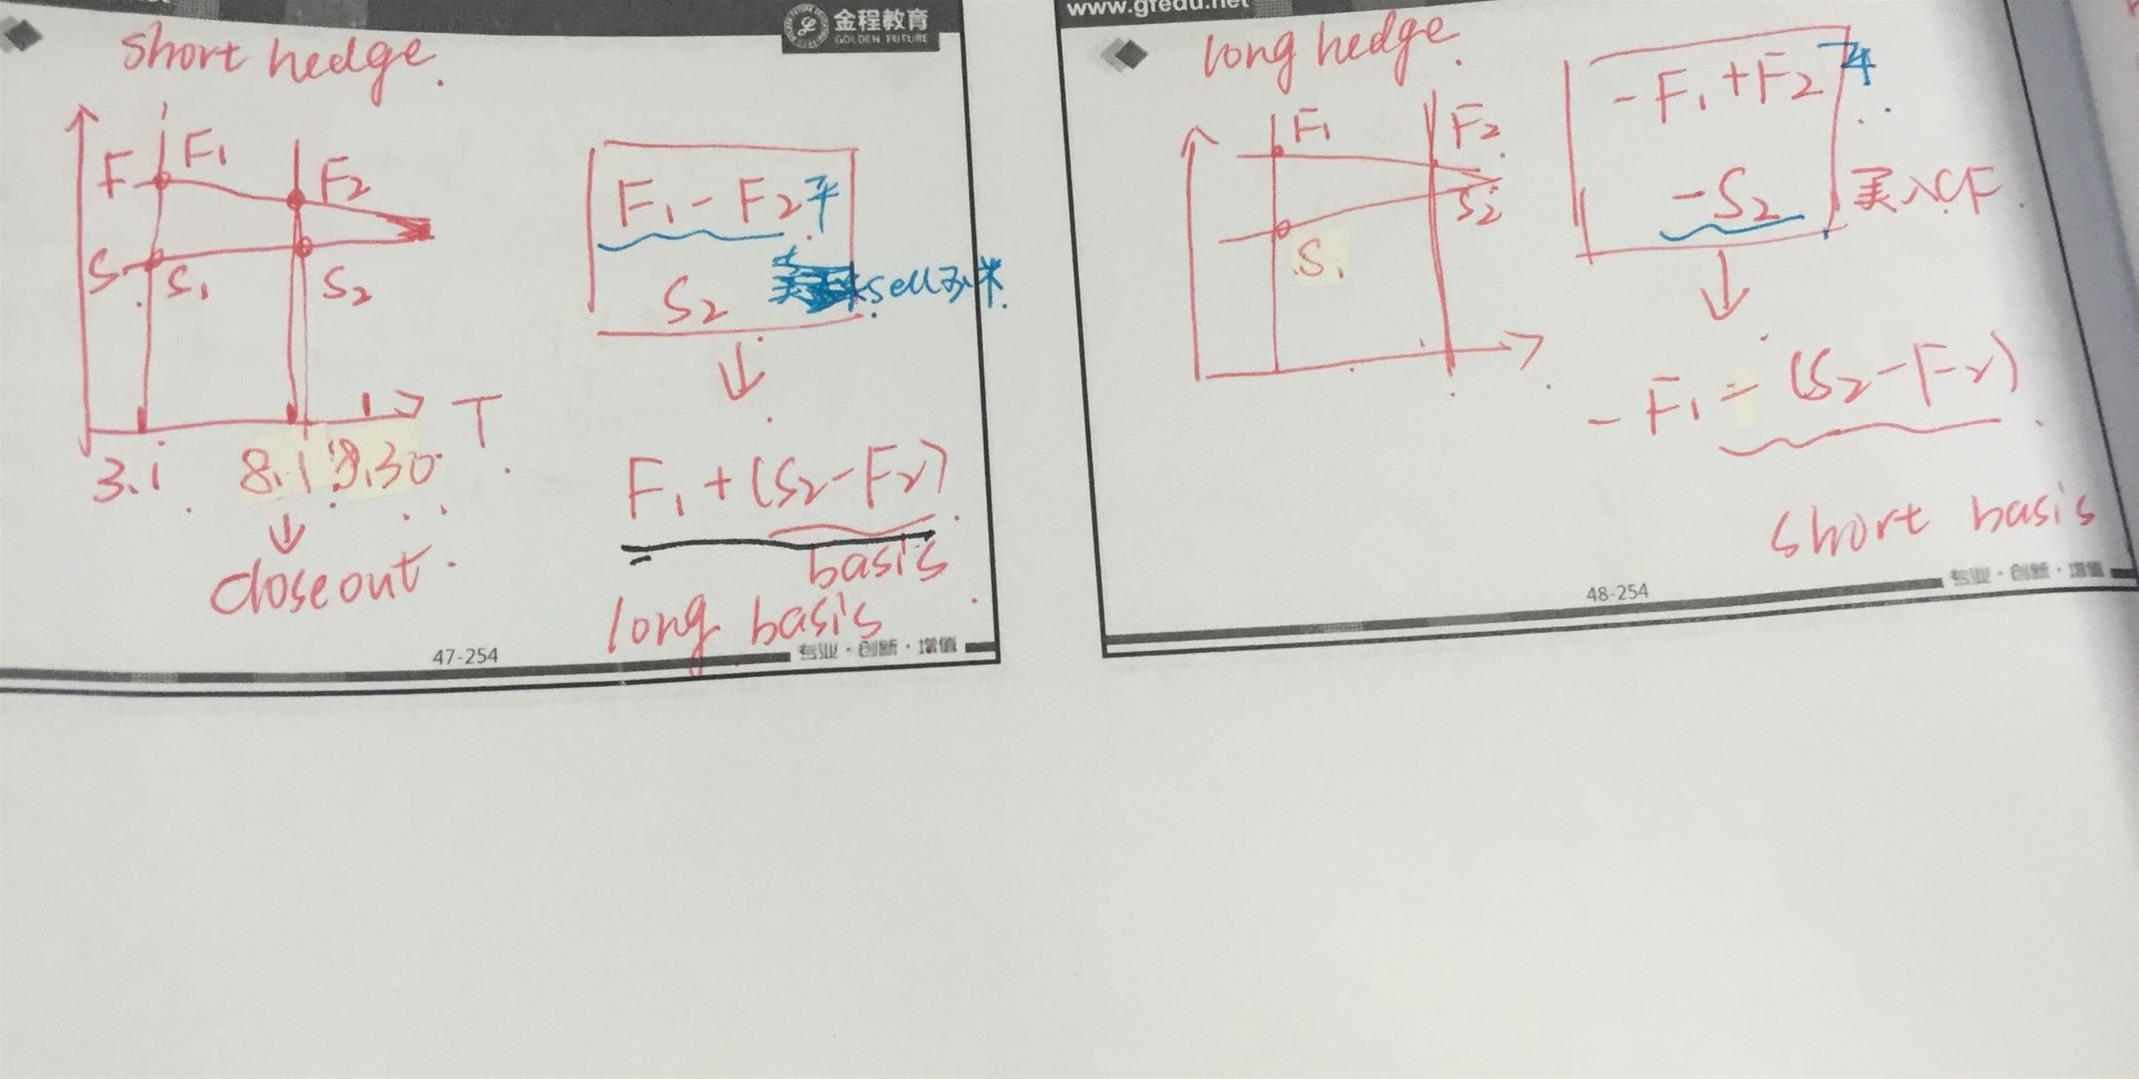 short hedge.
金程教育
GOLDEN FUTURE
F F1 F2
S S1 S2
T
3.1 8.1 9.30
↓
close out.
F1 - F2 平
S2 sell 玉米
↓
F1 + (S2 - F2)
basis
long basis
47-254
专业·创新·增值
www.gfedu.net
long hedge.
F1 F2
S1 S2
- F1 + F2 平
- S2 买入CF
↓
- F1 - (S2 - F2)
short basis
48-254
专业·创新·增值